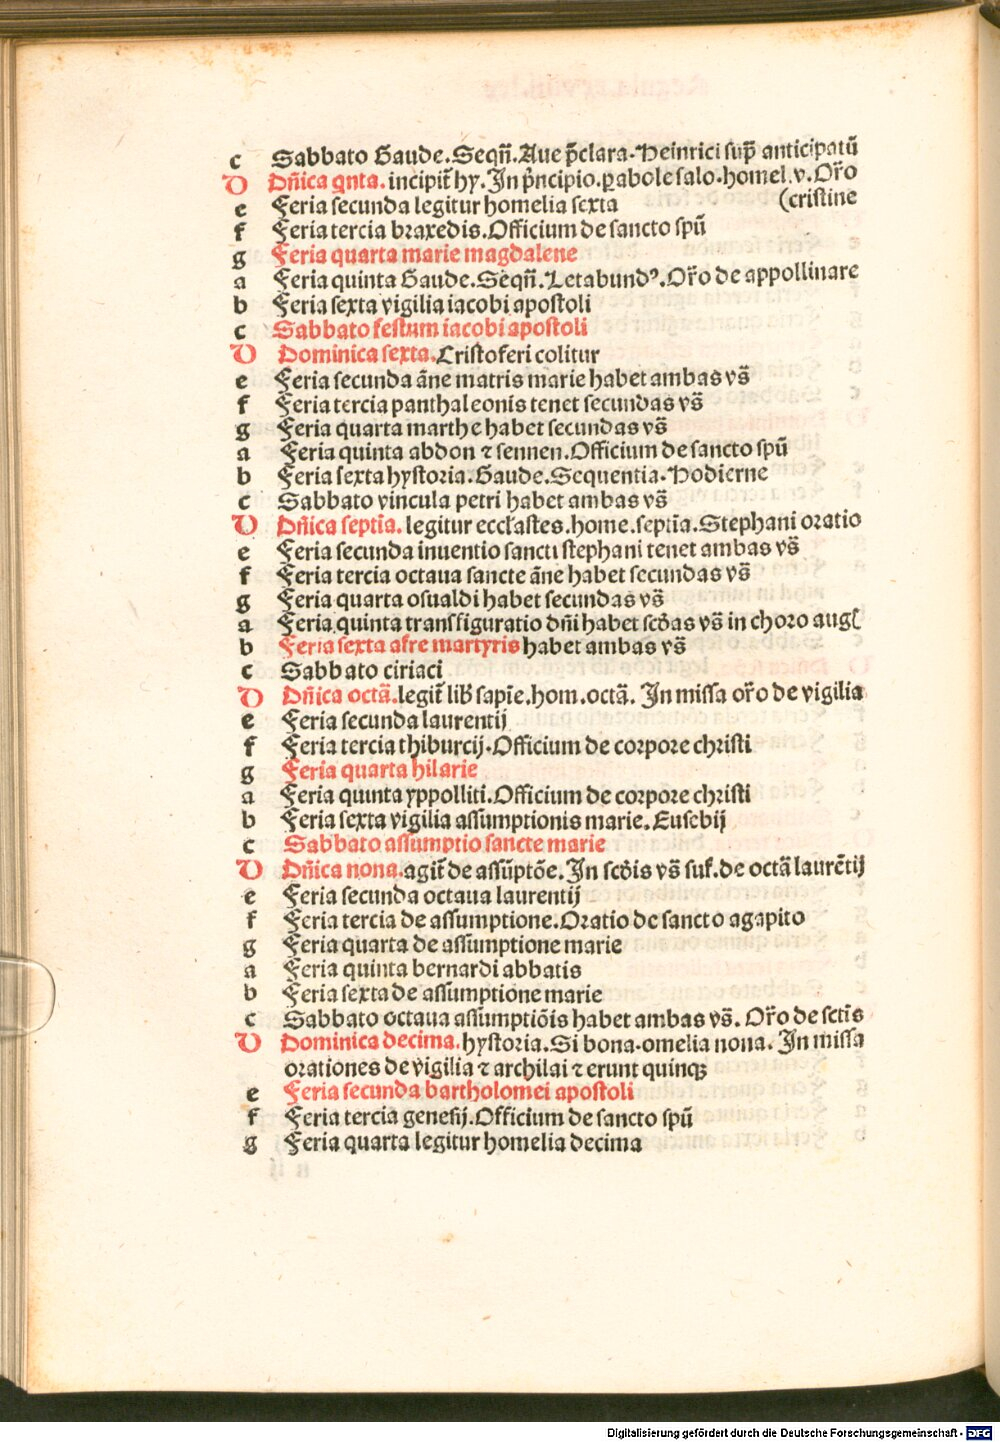 c Sabbato Gaude. Seqñ. Aue p̄clara. Heinrici sup̄ anticipatū
D Dñica qnta. incipit̄ hy. In p̄ncipio. ꝑabole salo. homel. v. Or̄o
e Feria secunda legitur homelia sexta (cristine
f Feria tercia braxedis. Officium de sancto spū
g Feria quarta marie magdalene
a Feria quinta Gaude. Seqñ. Letabundꝰ. Or̄o de appollinare
b Feria sexta vigilia iacobi apostoli
c Sabbato festum iacobi apostoli
D Dominica sexta. Cristoferi colitur
e Feria secunda āne matris marie habet ambas vs̄
f Feria tercia panthaleonis tenet secundas vs̄
g Feria quarta marthe habet secundas vs̄
a Feria quinta abdon ⁊ sennen. Officium de sancto spū
b Feria sexta hystoria. Gaude. Sequentia. Hodierne
c Sabbato vincula petri habet ambas vs̄
D Dñica septīa. legitur eccl̄astes. home. septīa. Stephani oratio
e Feria secunda inuentio sancti stephani tenet ambas vs̄
f Feria tercia octaua sancte āne habet secundas vs̄
g Feria quarta osualdi habet secundas vs̄
a Feria quinta transfiguratio dñi habet scd̄as vs̄ in choro augꝭ
b Feria sexta afre martyris habet ambas vs̄
c Sabbato ciriaci
D Dñica octā. legit̄ lib̄ sapīe. hom. octā. In missa or̄o de vigilia
e Feria secunda laurentij
f Feria tercia thiburcij. Officium de corpore christi
g Feria quarta hilarie
a Feria quinta yppolliti. Officium de corpore christi
b Feria sexta vigilia assumptionis marie. Eusebij
c Sabbato assumptio sancte marie
D Dñica nona. agit̄ de assūptōe. In scd̄is vs̄ suf. de octā laurētij
e Feria secunda octaua laurentij
f Feria tercia de assumptione. Oratio de sancto agapito
g Feria quarta de assumptione marie
a Feria quinta bernardi abbatis
b Feria sexta de assumptione marie
c Sabbato octaua assumptiōis habet ambas vs̄. Or̄o de sct̄is
D Dominica decima. hystoria. Si bona. omelia nona. In missa
orationes de vigilia ⁊ archilai ⁊ erunt quinqꝫ
e Feria secunda bartholomei apostoli
f Feria tercia genesij. Officium de sancto spū
g Feria quarta legitur homelia decima
Digitalisierung gefördert durch die Deutsche Forschungsgemeinschaft - DFG